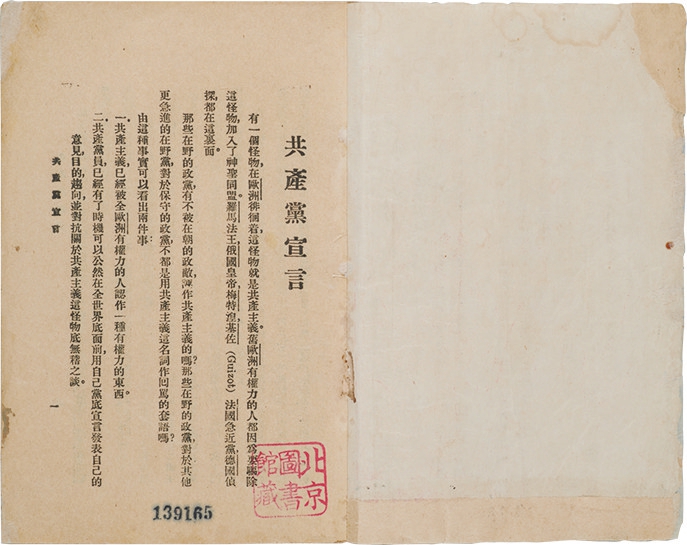 共產黨宣言
有一個怪物，在歐洲徘徊着，這怪物就是共產主義。舊歐洲有權力的人都因爲要驅除
這怪物，加入了神聖同盟。羅馬法王，俄國皇帝，梅特涅，基佐（Guizot）法國急近黨，德國偵
探，都在這裏面。
那些在野的政黨，有不被在朝的政敵，誣作共產主義的嗎？那些在野的政黨，對於其他
更急進的在野黨，對於保守的政黨，不都是用共產主義這名詞作回罵的套語嗎？
由這種事實可以看出兩件事：
一．共產主義，已經被全歐洲有權力的人認作一種有權力的東西。
二．共產黨員，已經有了時機可以公然在全世界底面前，用自己黨底宣言發表自己的
意見，目的，趨向，並對抗關於共產主義這怪物底無稽之談。
共產黨宣言
一
北京
圖書
館藏
139165